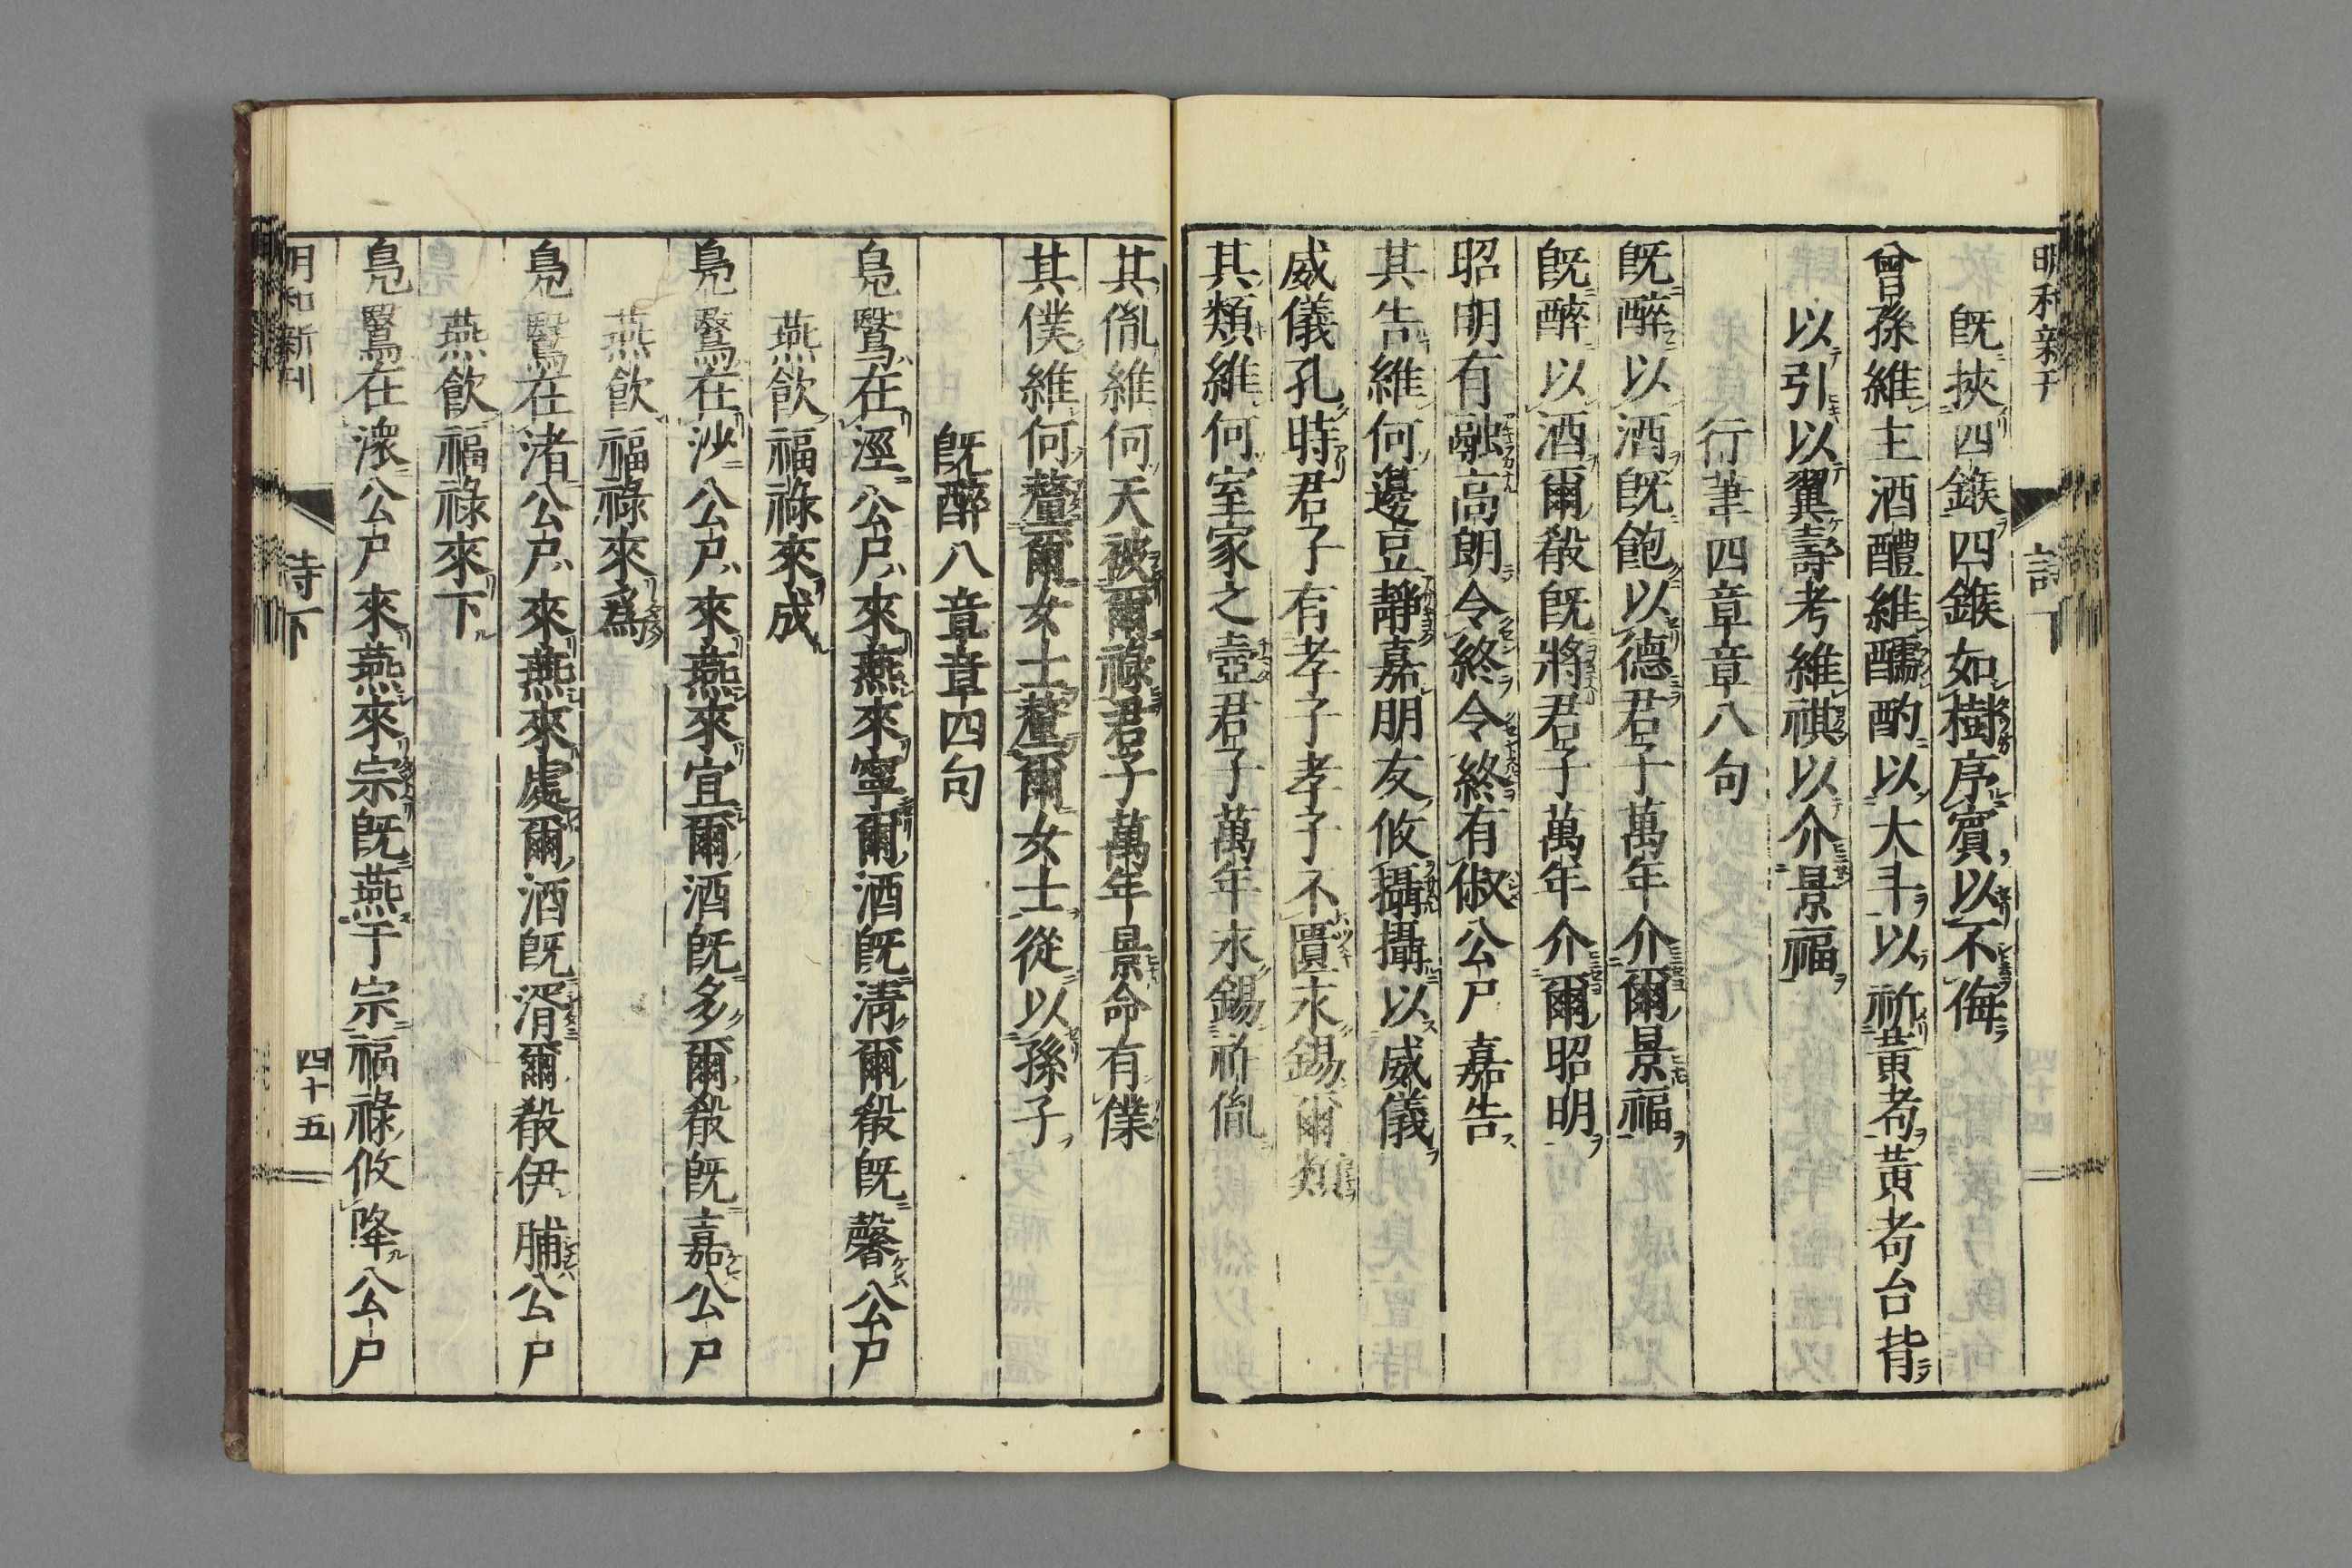 明和新刊
詩下
既挾四鍭四鍭如樹序賓以不侮
曾孫維主酒醴維醹酌以大斗以祈黃耇黃耇台背
以引以翼壽考維祺以介景福
行葦四章章八句
既醉以酒既飽以德君子萬年介爾景福
既醉以酒爾殽既將君子萬年介爾昭明
昭明有融高朗令終令終有俶公尸嘉告
其告維何籩豆靜嘉朋友攸攝攝以威儀
威儀孔時君子有孝子孝子不匱永錫爾類
其類維何室家之壼君子萬年永錫祚胤
其胤維何天被爾祿君子萬年景命有僕
其僕維何釐爾女士釐爾女士從以孫子
既醉八章章四句
鳧鷖在涇公尸來燕來寧爾酒既淸爾殽既馨公尸
燕飮福祿來成
鳧鷖在沙公尸來燕來宜爾酒既多爾殽既嘉公尸
燕飮福祿來爲
鳧鷖在渚公尸來燕來處爾酒既湑爾殽伊脯公尸
燕飮福祿來下
鳧鷖在潀公尸來燕來宗既燕于宗福祿攸降公尸
明和新刊
詩下
四十五